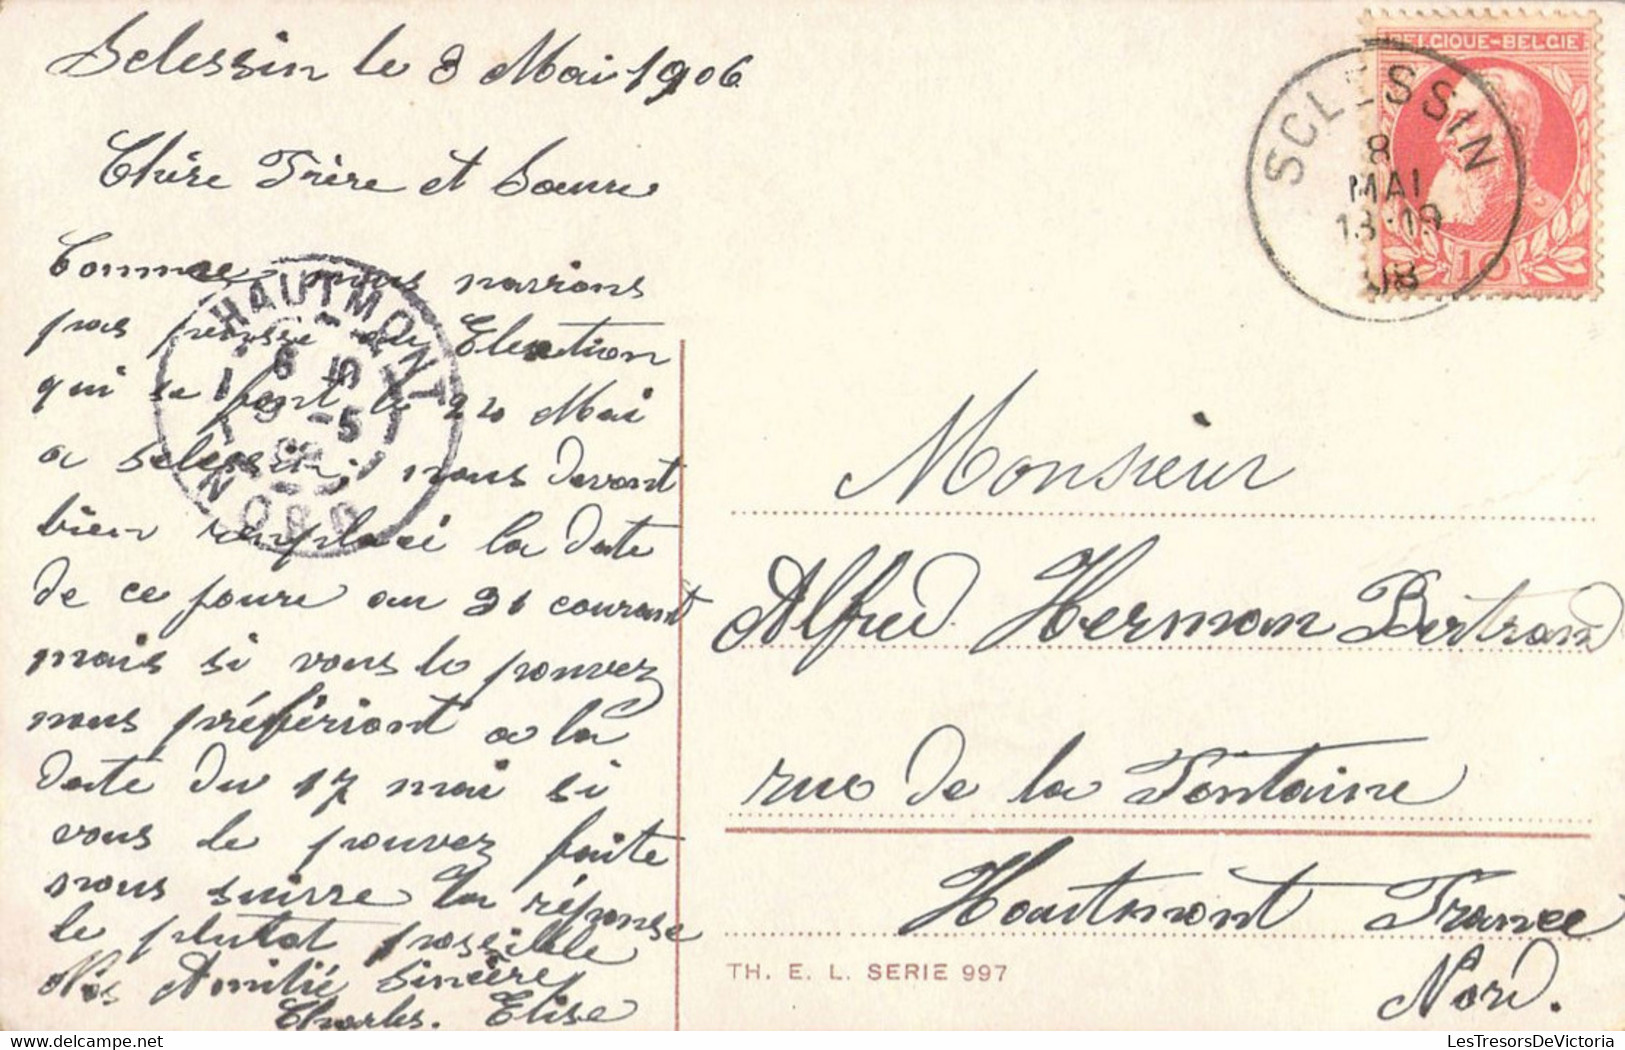 Sclessin le 8 Mai 1906
Chère Frère et Soeure
Comme nous navions
pas pensse au Election
qui se font le 24 Mai
a Sclessin, nous devont
bien remplaci la date
de ce joure au 31 courant
mais si vous le pouvez
nous préfériont a la
daté du 17 mai si
vous le pouvez faite
nous suivre la réponse
le plutot possible
Nos Amitié Sincère
Charles. Elise
HAUTMONT
6 15
9 -5
NORD
BELGIQUE-BELGIE
10
SCLESSIN
8
MAI
18-19
08
Monsieur
Alfred Herman Bertrand
rue de la Fontaine
Hautmont France
Nord.
TH. E. L. SERIE 997
LesTresorsDeVictoria